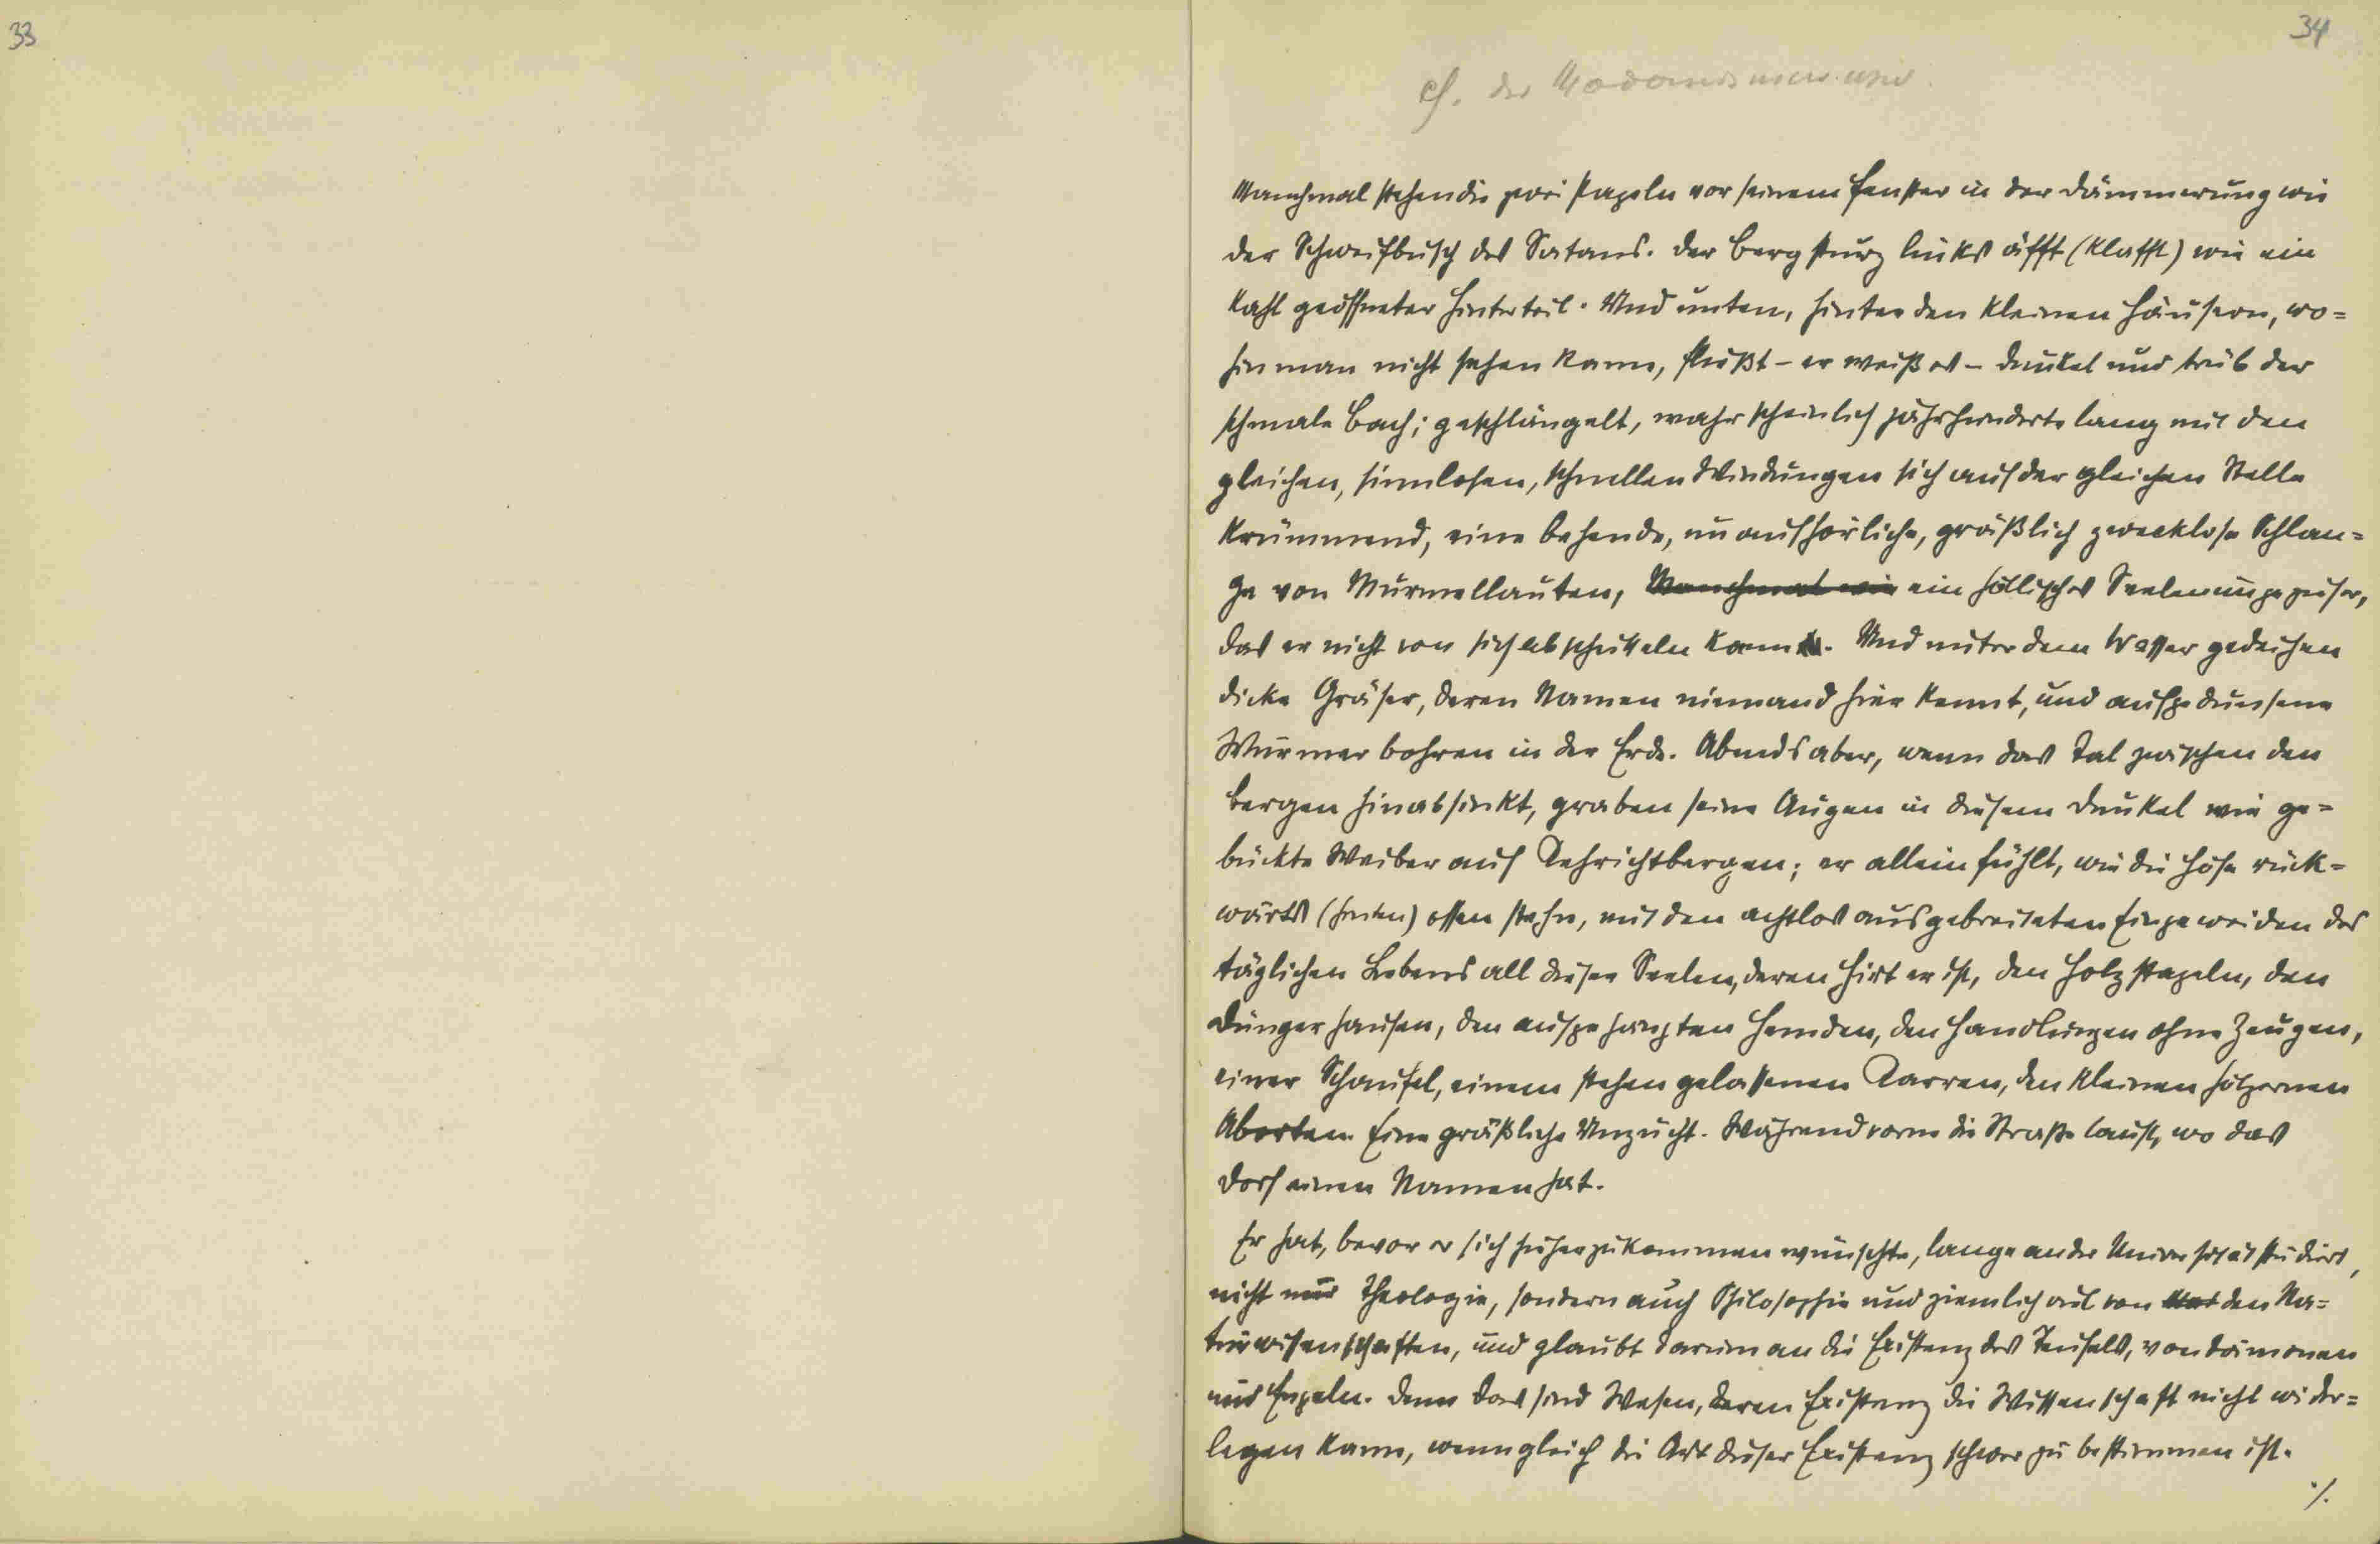 33
34
cf. der
Manchmal stehen die zwei Pappeln vor seinem Fenster in der Dämmerung wie
der Schweifbusch des Satans. Der Bergsturz links äfft (klafft) wie ein
kahl geöffneter Hinterteil. Und unten, hinter den kleinen Häusern, wo=
hin man nicht sehen kann, fließt – er weiß es – dunkel und trüb der
schmale Bach; geschlängelt, wahrscheinlich jahrhundertelang mit den
gleichen, sinnlosen, schnellen Windungen sich auf der gleichen Stelle
krümmend, eine behende, unaufhörliche, gräßlich zwecklose Schlan=
ge von Murmellauten, Manchmal wie ein höllisches Seelenungeziefer,
das er nicht von sich abschütteln kann. Und unter dem Wasser gedeihen
dicke Gräser, deren Namen niemand hier kennt, und aufgedunsene
Würmer bohren in der Erde. Abends aber, wenn das Tal zwischen den
Bergen hinabsinkt, graben seine Augen in diesem Dunkel wie ge=
bückte Weiber auf Kehrichtbergen; er allein fühlt, wie die Höfe rück=
wärts (hinten) offen stehn, mit den achtlos ausgebreiteten Eingeweiden des
täglichen Lebens all dieser Seelen, deren Hirt er ist, den Holzstapeln, den
Düngerhaufen, den aufgehängten Hemden, den Handlungen ohne Zeugen,
einer Schaufel, einem stehen gelassenen Karren, den kleinen hölzernen
Aborten. Eine gräßliche Unzucht. Während vorne die Straße lauft, wo das
Dorf einen Namen hat.
Er hat, bevor er sich hieherzukommen wünschte, lange an der Universität studiert,
nicht nur Theologie, sondern auch Philosophie und ziemlich viel von den Na=
turwissenschaften, und glaubt darum an die Existenz des Teufels, von Dämonen
und Engeln. Denn das sind Wesen, deren Existenz die Wissenschaft nicht wider=
legen kann, wenngleich die Art dieser Existenz schwer zu bestimmen ist.
./.